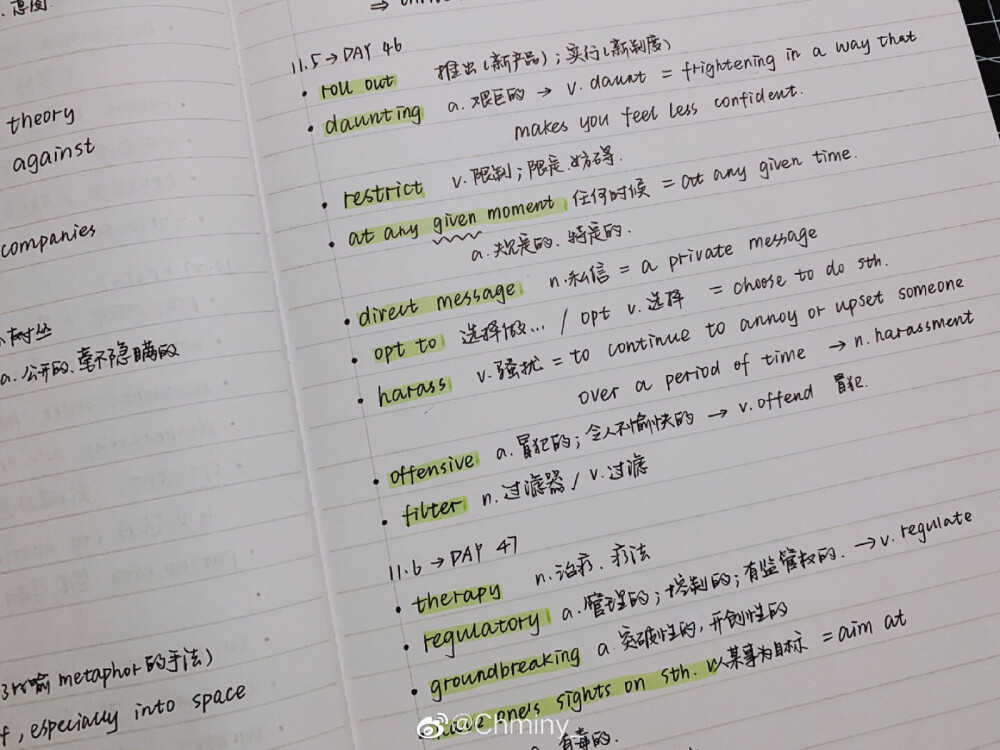 意图
theory
against
companies
a. 公开的、毫不隐瞒的
metaphor的手法)
f, especially into space
11.5→DAY 46
• roll out 推出(新产品);实行(新制度)
• daunting a. 艰巨的 → v. daunt = frightening in a way that
makes you feel less confident.
• restrict v. 限制;限定.妨碍.
• at any given moment 任何时候 = at any given time.
a. 规定的、特定的.
• direct message n. 私信 = a private message
• opt to 选择做... / opt v. 选择 = choose to do sth.
• harass v. 骚扰 = to continue to annoy or upset someone
over a period of time → n. harassment
• offensive a. 冒犯的;令人不愉快的 → v. offend 冒犯.
• filter n. 过滤器 / v. 过滤
11.6→DAY 47
• therapy n. 治疗、疗法
• regulatory a. 管理的;控制的;有监管权的. → v. regulate
• groundbreaking a. 突破性的,开创性的
• have one's sights on sth. 以某事为目标 = aim at
有毒的.
@Chminy